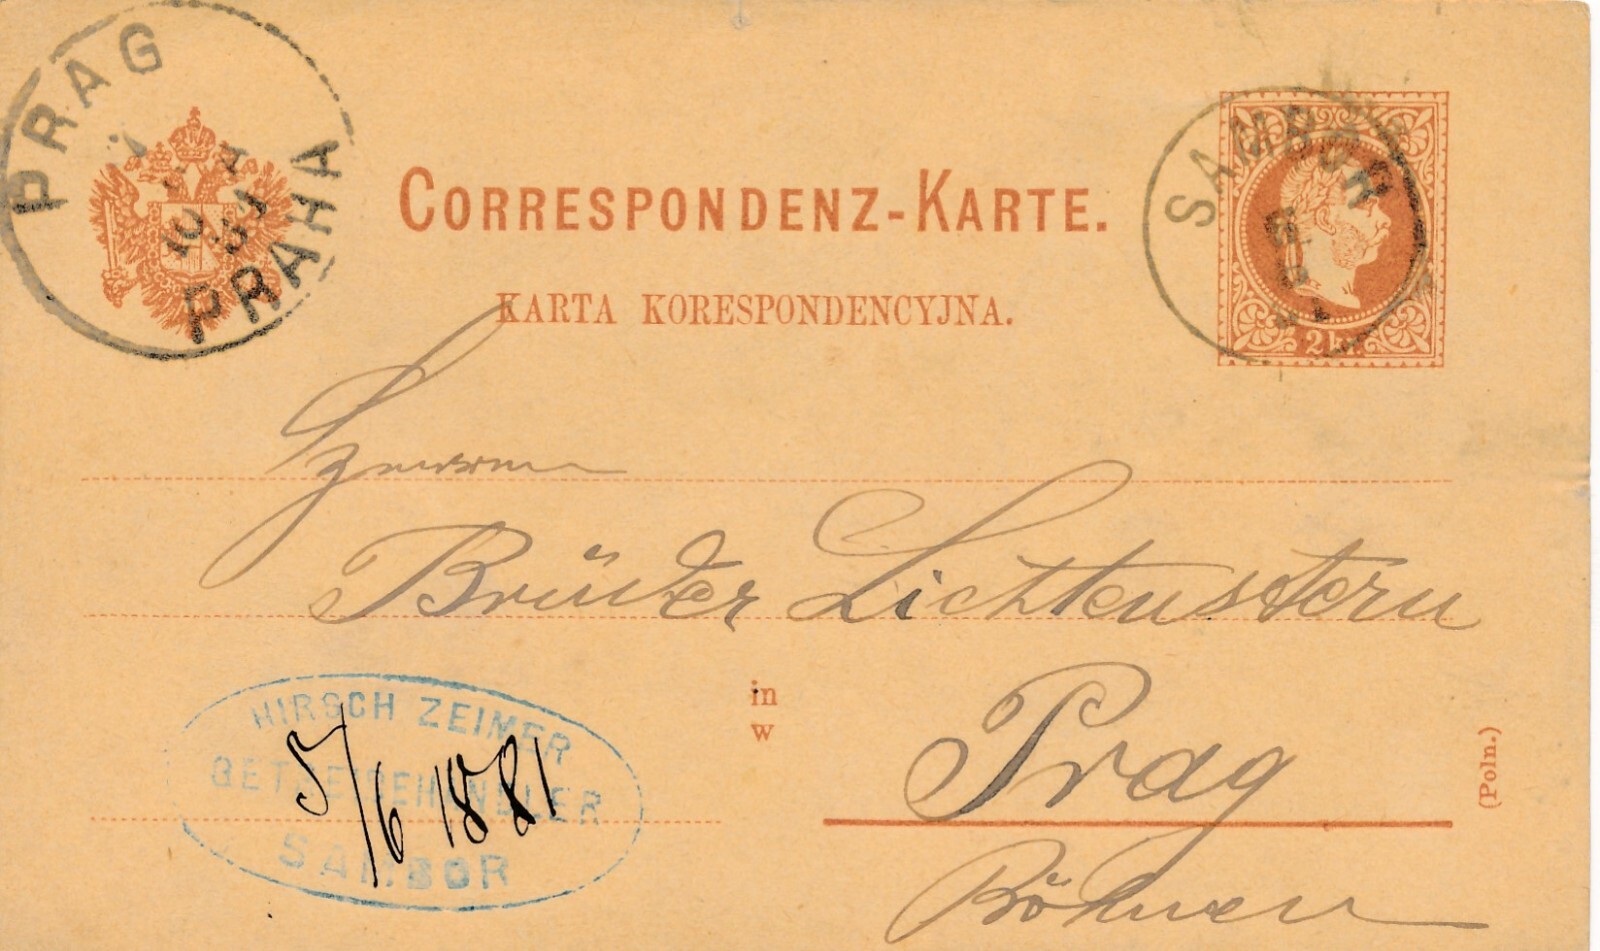 PRAG
PRAHA
CORRESPONDENZ-KARTE.
KARTA KORESPONDENCYJNA.
SAMBOR
2 kr.
Herren
Brüder Lichtenstern
in
w
Prag
Böhmen
(Poln.)
HIRSCH ZEIMER
GETREIDEHÄNDLER
SAMBOR
5/6 1881